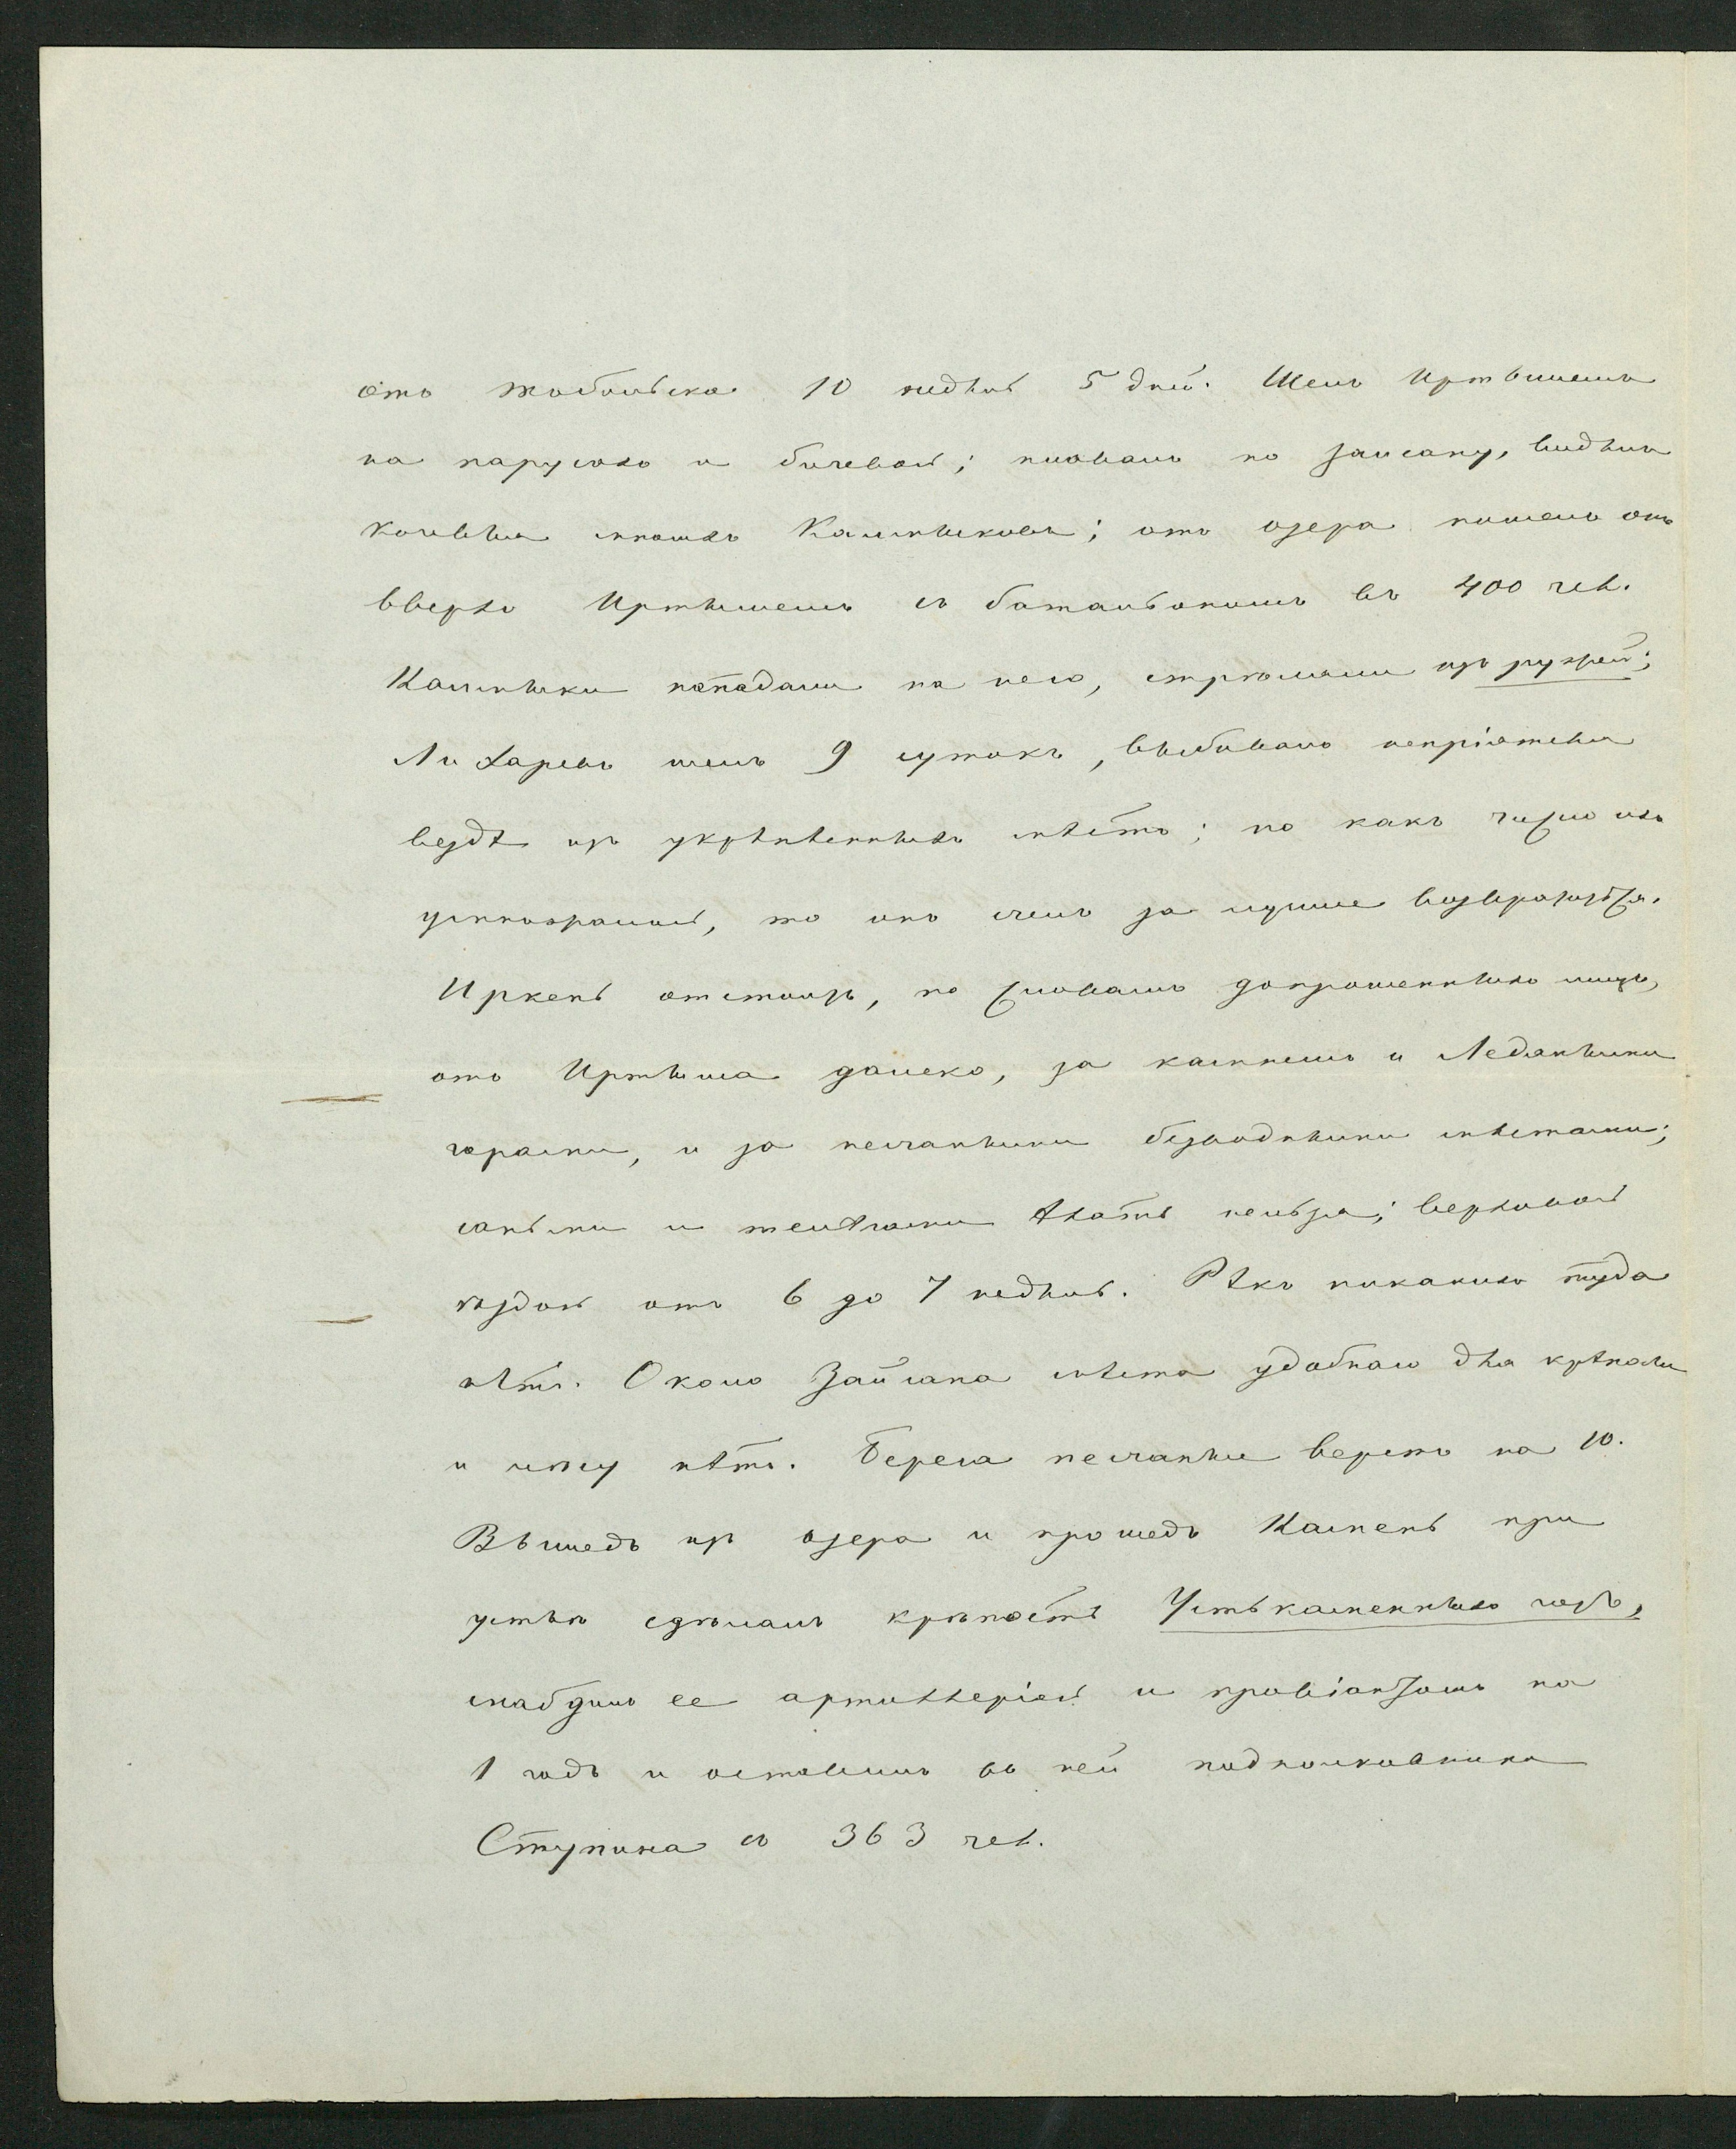 отъ Тобольска 10 недѣль 5 дней. Шелъ Иртышемъ
на парусахъ и бичевой; плавалъ по Зайсану, видѣлъ
кочевья многихъ Калмыковъ; отъ озера пошелъ онъ
вверхъ Иртышемъ съ баталіономъ въ 400 чел.
Калмыки нападали на него, стрѣляли изъ ружей;
Лихаревъ шелъ 9 сутокъ, выбивалъ непріятеля
вездѣ изъ укрѣпленныхъ мѣстъ; но какъ число ихъ
умножалось, то онъ счелъ за лучшее возвратиться.
Иркень отстоитъ, по словамъ допрошенныхъ лицъ,
отъ Иртыша далеко, за камнемъ и Ледяными
горами, и за песчаными безводными мѣстами;
саньми и телѣгами ѣхать нельзя; верховой
ѣзды отъ 6 до 7 недѣль. Рѣкъ никакихъ туда
нѣтъ. Около Зайсана мѣста удобнаго для крѣпости
и лѣсу нѣтъ. Берега песчаные верстъ на 10.
Вышедъ изъ озера и прошедъ Камень при
устьѣ сдѣлалъ крѣпость Устькаменныхъ горъ,
снабдилъ ее артиллеріей и провіантомъ на
1 годъ и оставилъ въ ней подполковника
Ступина съ 363 чел.